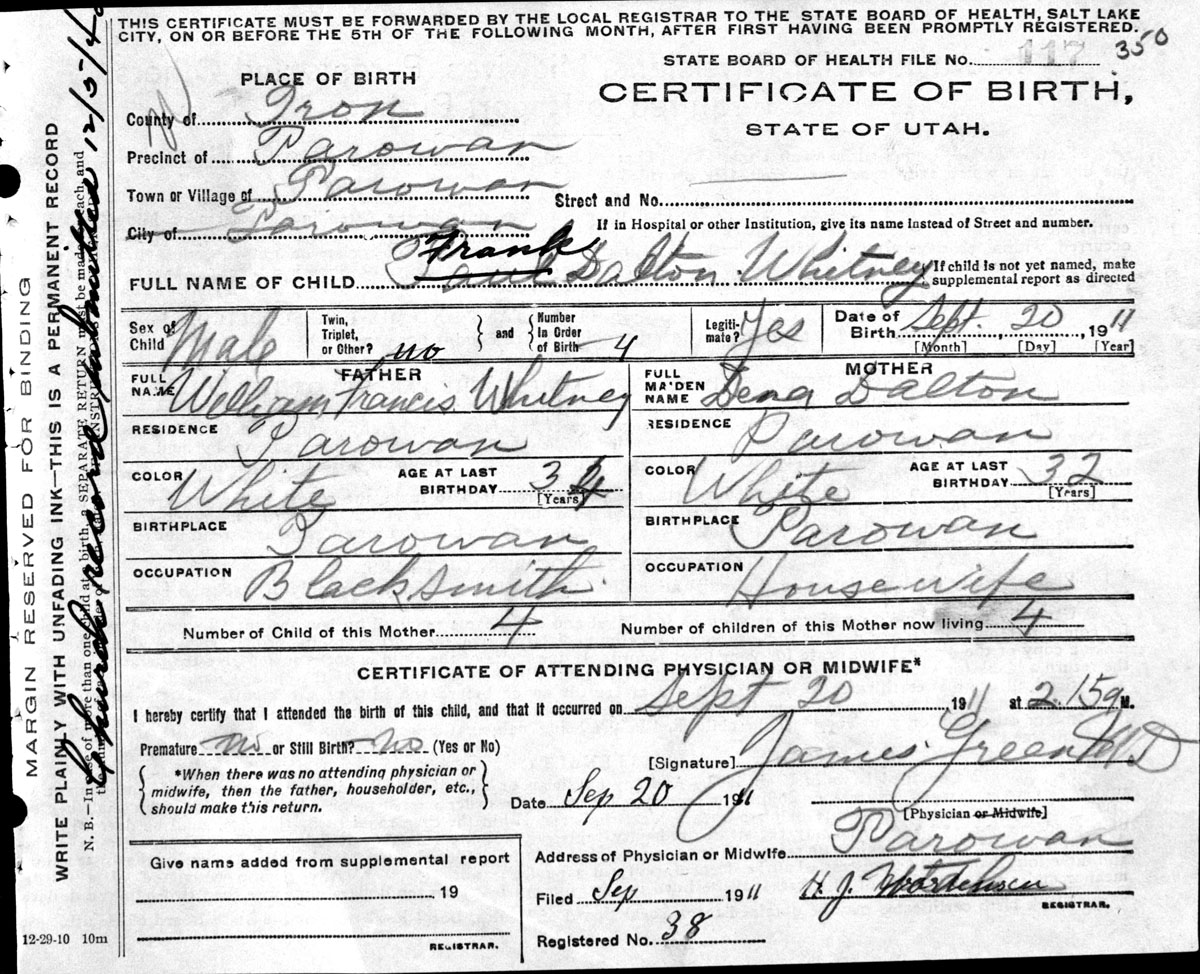 THIS CERTIFICATE MUST BE FORWARDED BY THE LOCAL REGISTRAR TO THE STATE BOARD OF HEALTH, SALT LAKE
CITY, ON OR BEFORE THE 5TH OF THE FOLLOWING MONTH, AFTER FIRST HAVING BEEN PROMPTLY REGISTERED.
STATE BOARD OF HEALTH FILE No. 117 350
PLACE OF BIRTH
CERTIFICATE OF BIRTH,
STATE OF UTAH.
County of Iron
Precinct of Parowan
Town or Village of Parowan
Street and No.
City of Parowan
If in Hospital or other Institution, give its name instead of Street and number.
Frank
FULL NAME OF CHILD Paul Dalton Whitney
If child is not yet named, make
supplemental report as directed
Sex of Child Male
Twin, Triplet, or Other? no
and
Number in Order of Birth 4
Legitimate? Yes
Date of Birth Sept. 20, 1911
[Month] [Day] [Year]
FATHER
FULL NAME William Francis Whitney
RESIDENCE Parowan
COLOR White
AGE AT LAST BIRTHDAY 34
[Years]
BIRTHPLACE Parowan
OCCUPATION Blacksmith
MOTHER
FULL MAIDEN NAME Dena Dalton
RESIDENCE Parowan
COLOR White
AGE AT LAST BIRTHDAY 32
[Years]
BIRTHPLACE Parowan
OCCUPATION Housewife
Number of Child of this Mother 4
Number of children of this Mother now living 4
CERTIFICATE OF ATTENDING PHYSICIAN OR MIDWIFE*
I hereby certify that I attended the birth of this child, and that it occurred on Sept 20 1911 at 2.15a M.
Premature no or Still Birth? no (Yes or No)
[Signature] James Green MD
*When there was no attending physician or
midwife, then the father, householder, etc.,
should make this return.
Date Sep 20 1911
[Physician or Midwife]
Address of Physician or Midwife Parowan
Give name added from supplemental report
19
REGISTRAR.
Filed Sep 1911 H. J.
REGISTRAR.
Registered No. 38
12-29-10 10m
MARGIN RESERVED FOR BINDING
WRITE PLAINLY WITH UNFADING INK—THIS IS A PERMANENT RECORD
N. B.—In case of more than one child at a birth, a SEPARATE RETURN must be made for each, and
Church record submitted